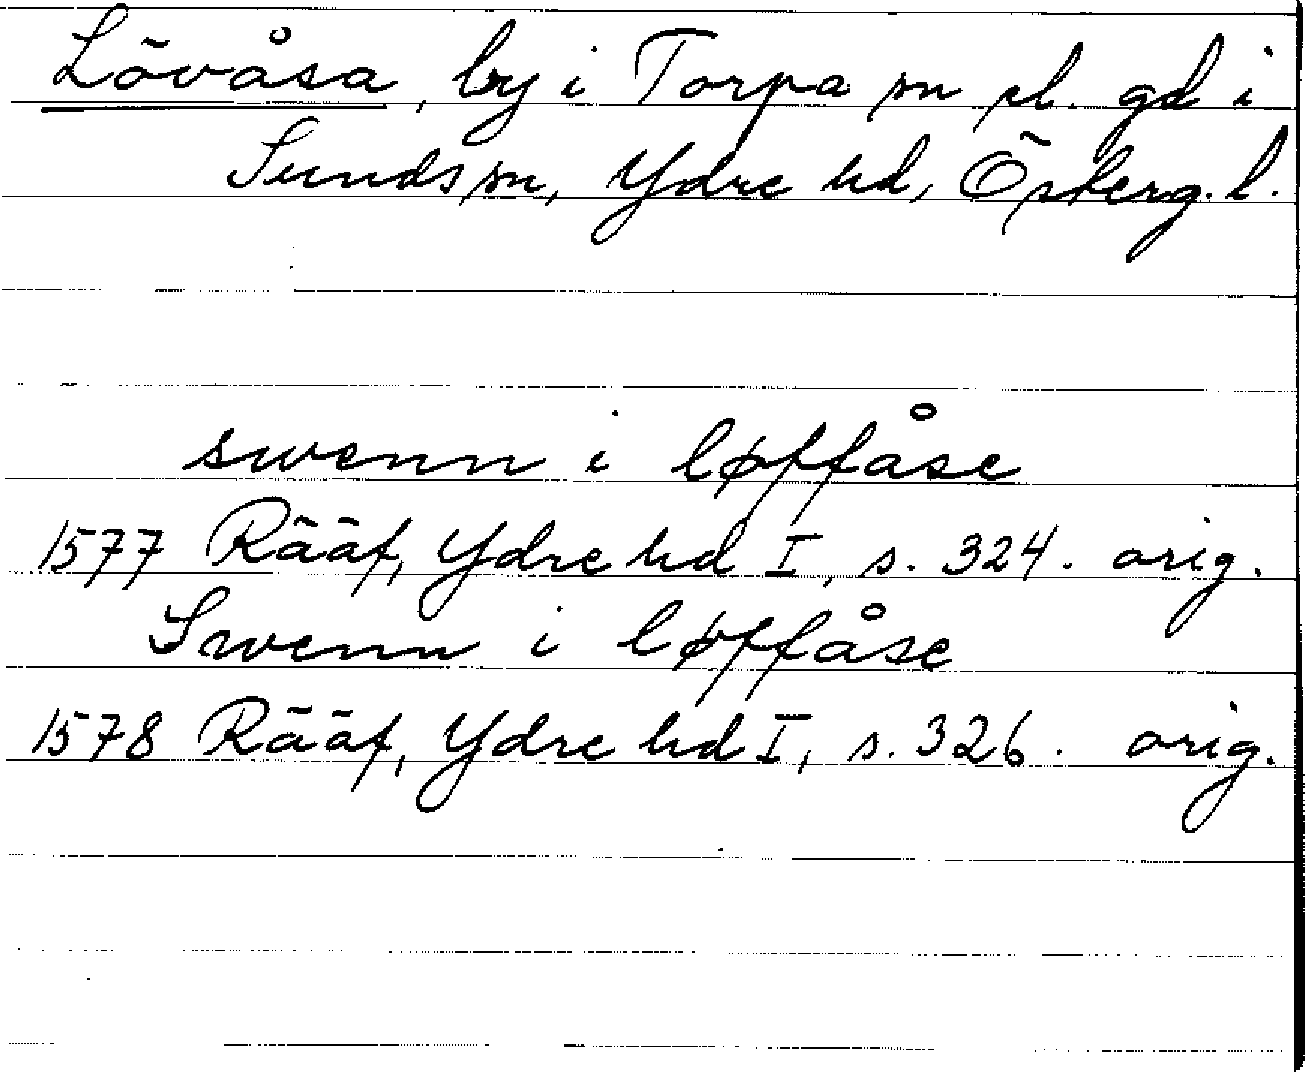 Lövåsa, by i Torpa sn pl. gd i
Sunds sn, Ydre hd, Österg. l.
swenn i løffåse
1577 Rääf, Ydre hd I, s. 324. orig.
Swenn i løffåse
1578 Rääf, Ydre hd I, s. 326. orig.